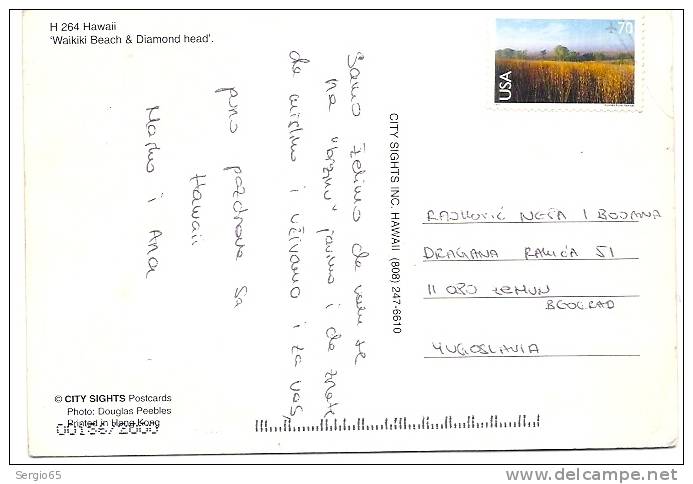 H 264 Hawaii
'Waikiki Beach & Diamond head'.
70
USA
Samo želimo da vam se
na "brzinu" javimo i da znate
da mislimo i uživamo i za vas,
puno pozdrava sa
Hawaii
Marko i Ana
CITY SIGHTS INC. HAWAII (808) 247-6610
RAJKOVIĆ NEŠA I BOJANA
DRAGANA RAKIĆA 51
11 080 ZEMUN
BEOGRAD
YUGOSLAVIA
© CITY SIGHTS Postcards
Photo: Douglas Peebles
Printed in Hong Kong
Sergio65
www.delcampe.net